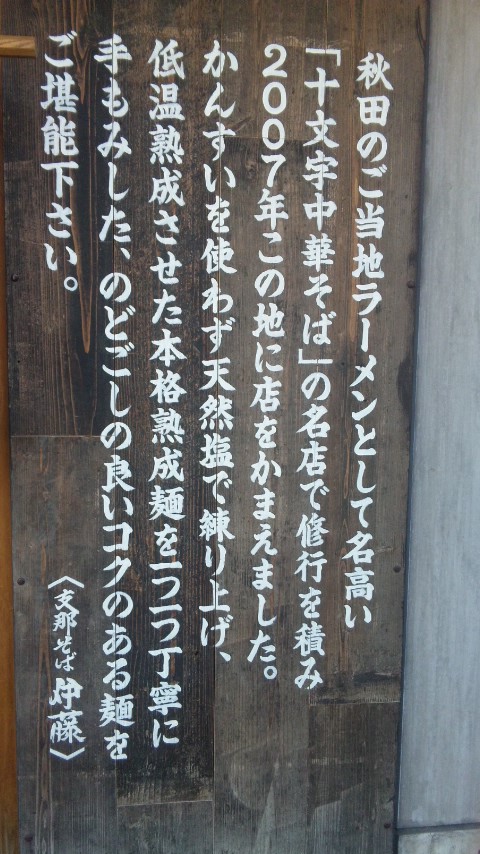 秋田のご当地ラーメンとして名高い
「十文字中華そば」の名店で修行を積み
2007年この地に店をかまえました。
かんすいを使わず天然塩で練り上げ、
低温熟成させた本格熟成麺を一つ一つ丁寧に
手もみした、のどごしの良いコクのある麺を
ご堪能下さい。
〈支那そば 伊藤〉